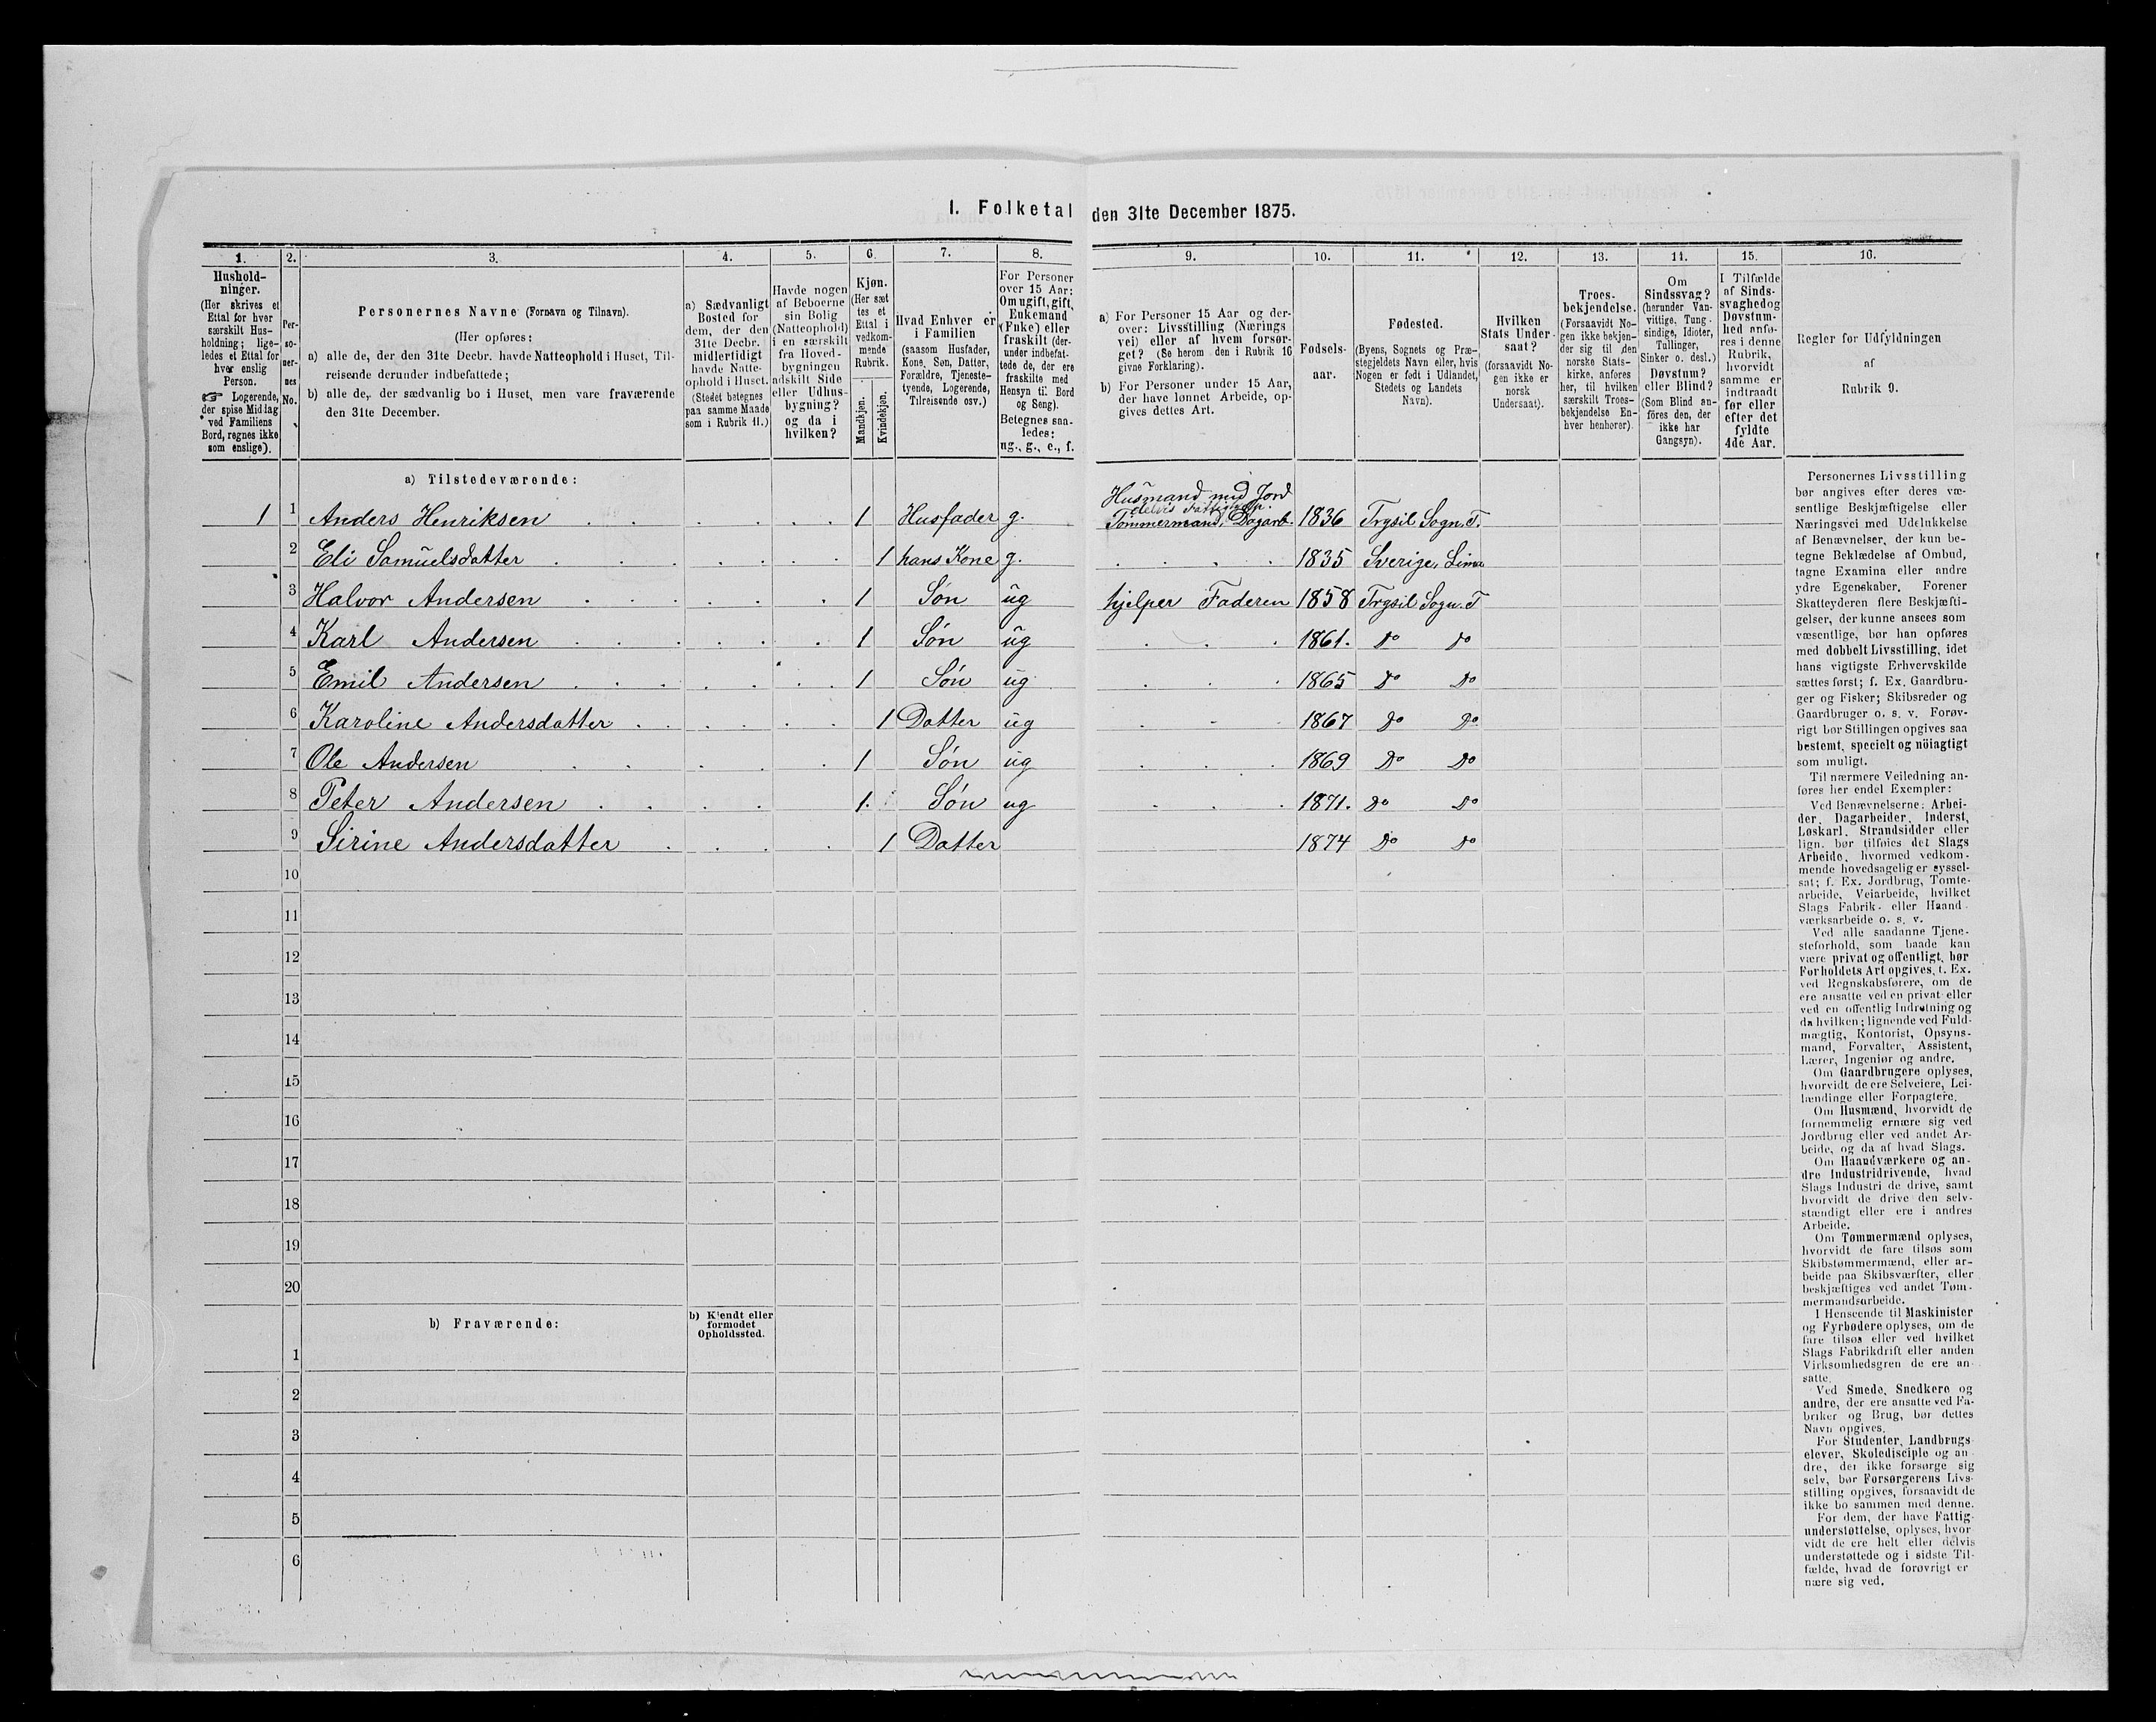 1. Folketal den 31te December 1875.
1. 2. 3. 4. 5. 6. 7. 8. 9. 10. 11. 12. 13. 14. 15. 16.
Hushold-
ninger.
(Her skrives et
Ettal for hver
særskilt Hus-
holdning; lige-
ledes et Ettal for
hver enslig
Person.
☞ Logerende,
der spise Middag
ved Familiens
Bord, regnes ikke
som enslige).
Per-
so-
ner-
nes
No.
Personernes Navne (Fornavn og Tilnavn).
(Her opføres:
a) alle de, der den 31te Decbr. havde Natteophold i Huset, Til-
reisende derunder indbefattede;
b) alle de, der sædvanlig bo i Huset, men vare fraværende
den 31te December.
a) Sædvanligt
Bosted for
dem, der den
31te Decbr.
midlertidigt
havde Natte-
ophold i Huset.
(Stedet betegnes
paa samme Maade
som i Rubrik 11.)
Havde nogen
af Beboerne
sin Bolig
(Natteophold)
i en særskilt
fra Hoved-
bygningen
adskilt Side
eller Udhus-
bygning?
og da i
hvilken?
Kjøn.
(Her sæt
tes et
Ettal i
vedkom-
mende
Rubrik.
Mandkjøn.
Kvindekjøn.
Hvad Enhver er
i Familien
(saasom Husfader,
Kone, Søn, Datter,
Forældre, Tjeneste-
tyende, Logerende,
Tilreisende osv.)
For Personer
over 15 Aar:
Om ugift, gift,
Enkemand
(Enke) eller
fraskilt (der-
under indbefat-
tede de, der ere
fraskilte med
Hensyn til Bord
og Seng).
Betegnes saa-
ledes:
ug., g., e., f.
a) For Personer 15 Aar og der-
over: Livsstilling (Nærings
vei) eller af hvem forsør-
get? (Se herom den i Rubrik 16
givne Forklaring).
b) For Personer under 15 Aar,
der have lønnet Arbeide, op-
gives dettes Art.
Fødsels-
aar.
Fødested.
(Byens, Sognets og Præ-
stegjeldets Navn eller, hvis
Nogen er født i Udlandet,
Stedets og Landets
Navn).
Hvilken
Stats Under-
saat?
(forsaavidt No-
gen ikke er
norsk
Undersaat).
Troes-
bekjendelse.
(Forsaavidt No-
gen ikke bekjen-
der sig til den
norske Stats-
kirke, anføres
her, til hvilken
særskilt Troes-
bekjendelse En-
hver henhører).
Om
Sindssvag?
(herunder Van-
vittige, Tung-
sindige, Idioter,
Tullinger,
Sinker o. desl.)
Døvstum?
eller Blind?
(Som Blind an-
föres den, der
ikke har
Gangsyn).
I Tilfælde
af Sinds-
svaghed og
Døvstum-
hed anfø-
res i denne
Rubrik,
hvorvidt
samme er
indtraadt
før eller
efter det
fyldte
4de Aar.
Regler for Udfyldningen
af
Rubrik 9.
a) Tilstedeværende:
Husmand med Jord
delvis Fattigund.
1 1 Anders Henriksen 1 Husfader g. Tömmermand, Dagarb. 1836 Trysil Sogn. T.
2 Eli Samuelsdatter 1 hans Kone g. 1835 Sverige, Lima
3 Halvor Andersen 1 Søn ug hjelper Faderen 1858 Trysil Sogn. T
4 Karl Andersen 1 Søn ug 1861. Do Do
5 Emil Andersen 1 Søn ug 1865 Do Do
6 Karoline Andersdatter 1 Datter ug 1867 Do Do
7 Ole Andersen 1 Søn ug 1869 Do Do
8 Peter Andersen 1. Søn ug 1871. Do Do
9 Sirine Andersdatter 1 Datter 1874 Do Do
10
11
12
13
14
15
16
17
18
19
20
b) Fraværende:
b) Kjendt eller
formodet
Opholdssted.
1
2
3
4
5
6
Personernes Livsstilling
bør angives efter deres væ-
sentlige Beskjæftigelse eller
Næringsvei med Udelukkelse
af Benævnelser, der kun be-
tegne Beklædelse af Ombud,
tagne Examina eller andre
ydre Egenskaber. Forener
Skatteyderen flere Beskjæfti-
gelser, der kunne ansees som
væsentlige, bør han opføres
med dobbelt Livsstilling, idet
hans vigtigste Erhvervskilde
sættes først; f. Ex. Gaardbru-
ger og Fisker; Skibsreder og
Gaardbruger o. s. v. Forøv-
rigt bør Stillingen opgives saa
bestemt, specielt og nöiagtigt
som muligt.
Til nærmere Veiledning an-
føres her endel Exempler:
Ved Benævnelserne: Arbei-
der, Dagarbeider, Inderst,
Løskarl, Strandsidder eller
lign. bør tilføies det Slags
Arbeide, hvormed vedkom-
mende hovedsagelig er syssel-
sat; f. Ex. Jordbrug, Tomte-
arbeide, Veiarbeide, hvilket
Slags Fabrik- eller Haand-
værksarbeide o. s. v.
Ved alle saadanne Tjene-
steforhold, som baade kan
være privat og offentligt, bør
Forholdets Art opgives, t. Ex.
ved Regnskabsførere, om de
ere ansatte ved en privat eller
ved en offentlig Indretning og
da hvilken; lignende ved Fuld-
mægtig, Kontorist, Opsyns-
mand, Forvalter, Assistent,
Lærer, Ingeniør og andre.
Om Gaardbrugere oplyses,
hvorvidt de ere Selveiere, Lei-
lændinge eller Forpagtere.
Om Husmænd, hvorvidt de
fornemmelig ernære sig ved
Jordbrug eller ved andet Ar-
beide, og da af hvad Slags.
Om Haandværkere og an-
dre Industridrivende, hvad
Slags Industri de drive, samt
hvorvidt de drive den selv-
stændigt eller ere i andres
Arbeide.
Om Tømmermænd oplyses,
hvorvidt de fare tilsøs som
Skibstømmermænd, eller ar-
beide paa Skibsværfter, eller
beskjæftiges ved andet Tøm-
mermandsarbeide.
I Henseende til Maskinister
og Fyrbødere oplyses, om de
fare tilsøs eller ved hvilket
Slags Fabrikdrift eller anden
Virksomhedsgren de ere an-
satte.
Ved Smede, Snedkere og
andre, der ere ansatte ved Fa-
briker og Brug, bør dettes
Navn opgives.
For Studenter, Landbrugs-
elever, Skoledisciple og an-
dre, der ikke forsørge sig
selv, bør Forsørgerens Livs-
stilling opgives, forsaavidt de
ikke bo sammen med denne.
For dem, der have Fattig-
understøttelse, oplyses, hvor
vidt de ere helt eller delvis
understøttede og i sidste Til-
fælde, hvad de forøvrigt er
nære sig ved.